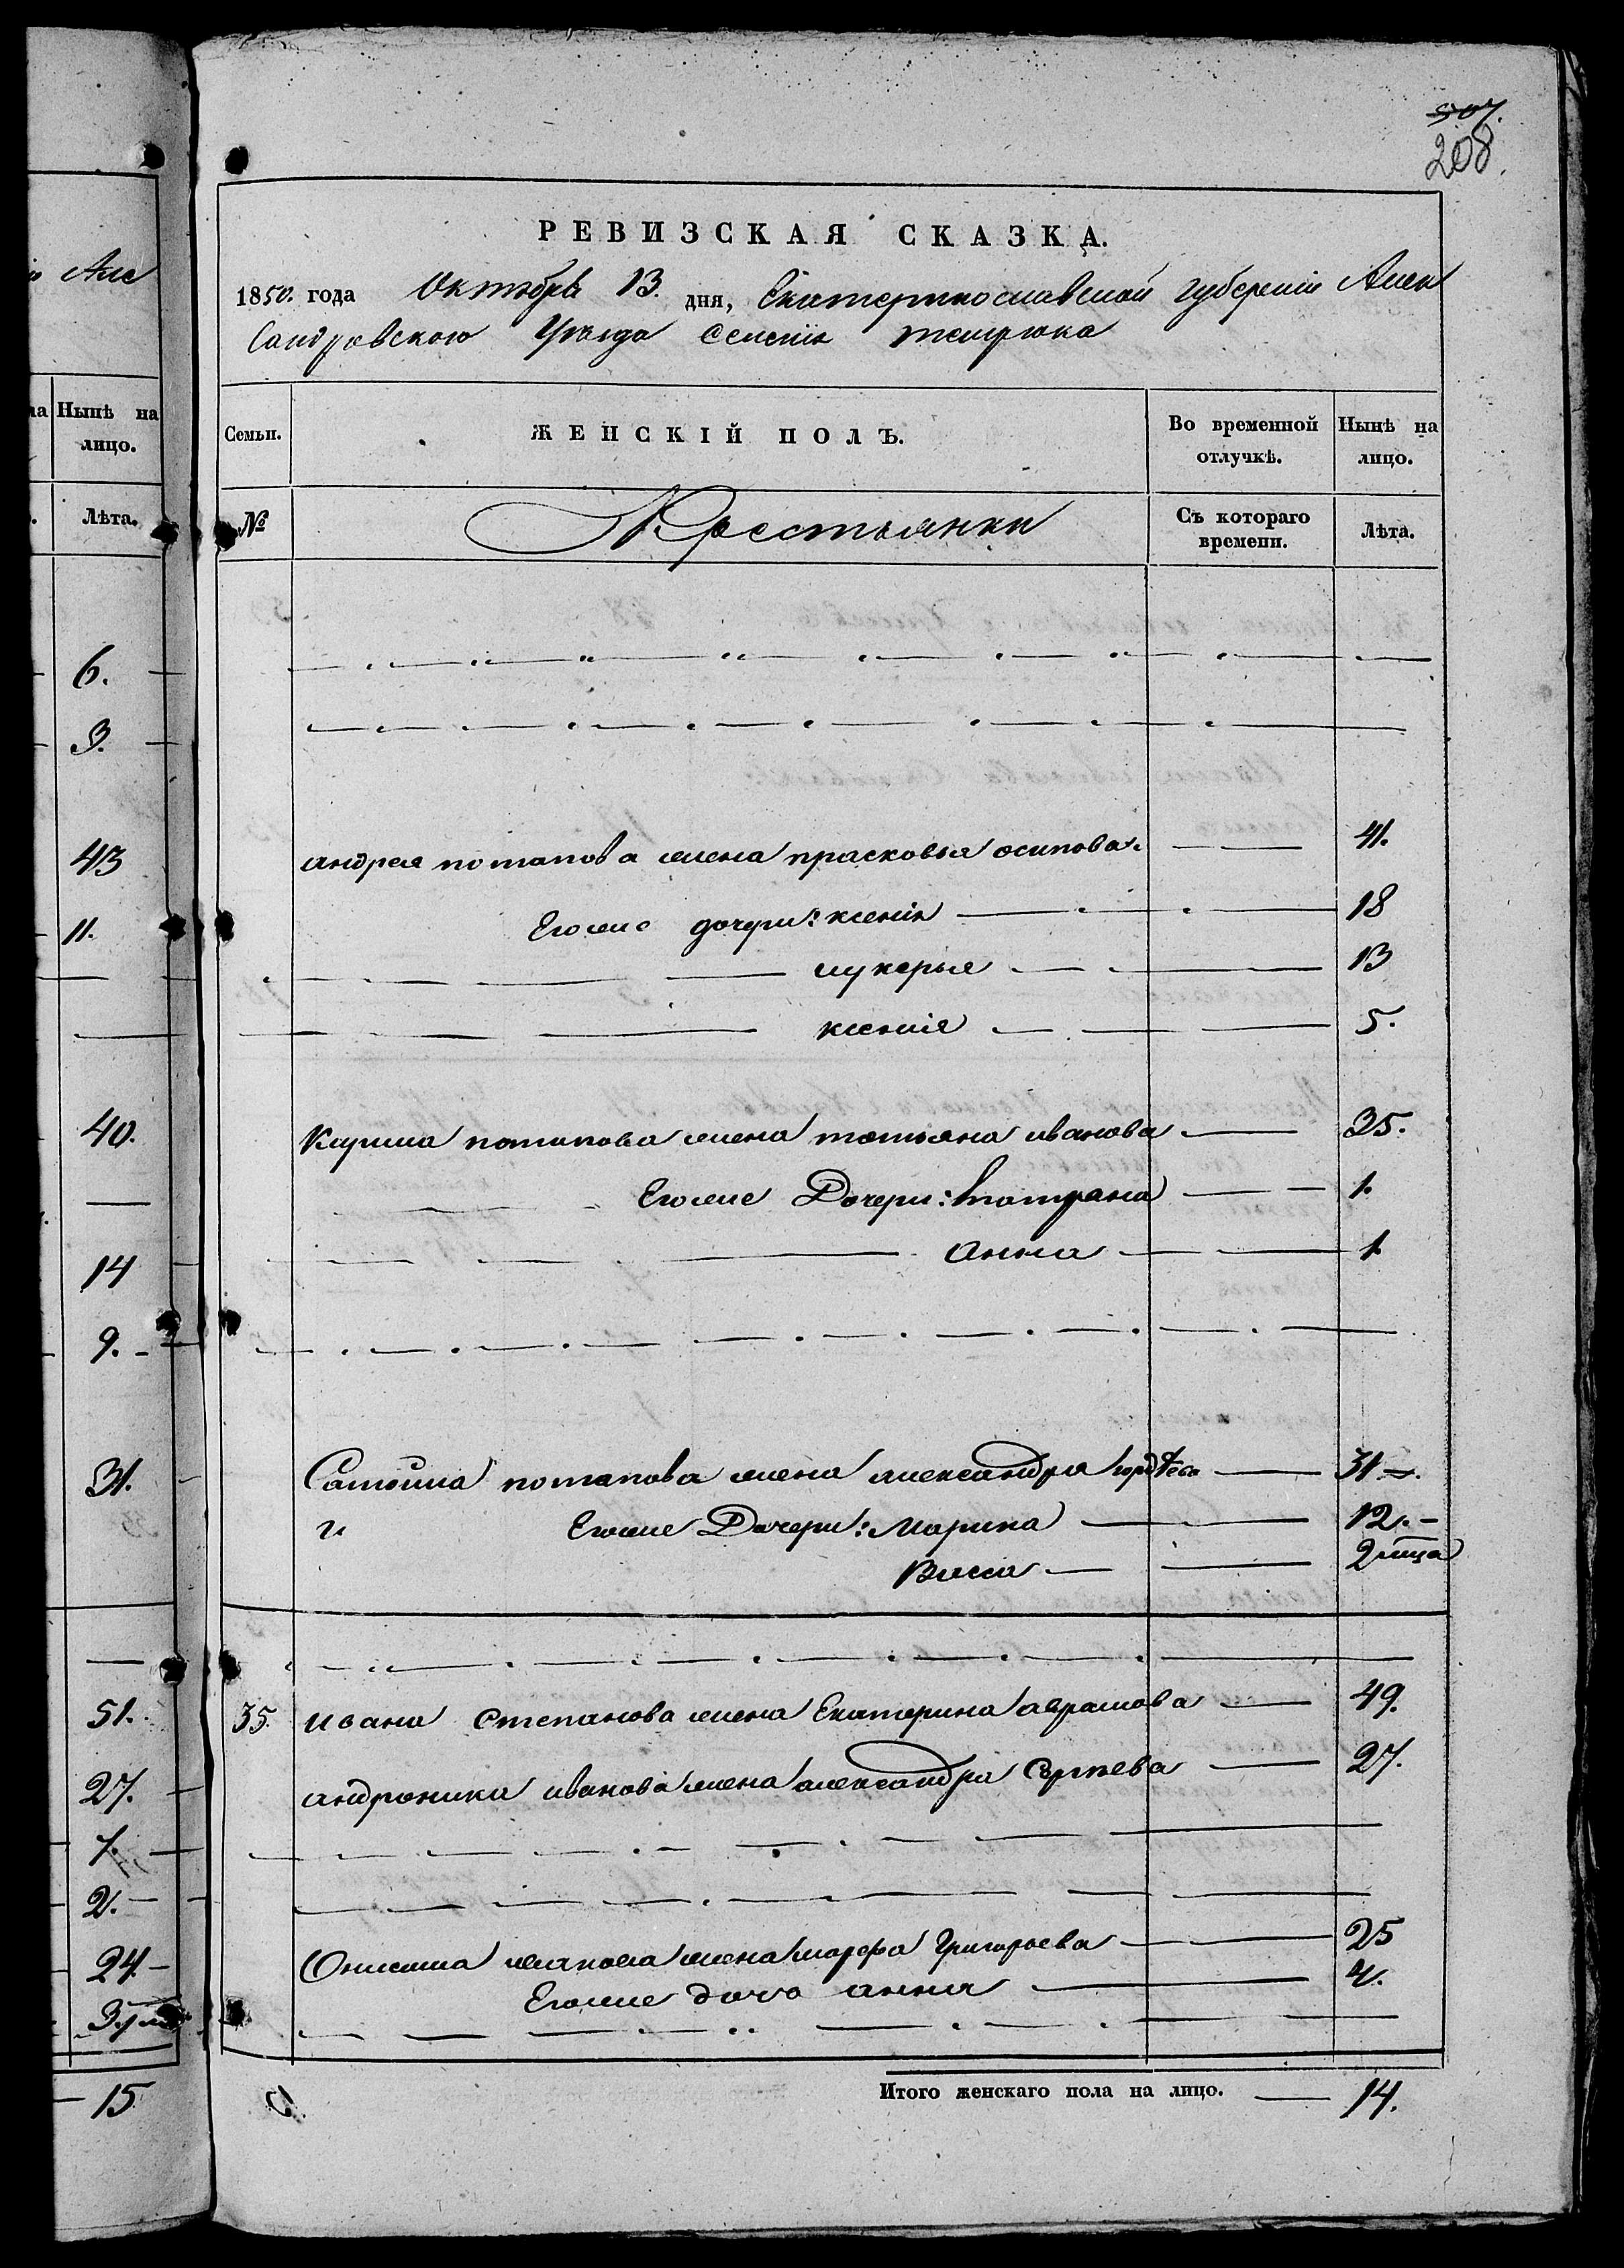 207.
208.
РЕВИЗСКАЯ СКАЗКА.
1850. года Октября 13. дня, Екатеринославской губернии Алек
сандровского Уезда Селения темрюка
Семьи. ЖЕНСКІЙ ПОЛЪ. Во временной отлучкѣ. Нынѣ на лицо.
№ Крестьянки Съ котораго времени. Лѣта.
андрея потапова жена прасковья осипова 41.
Егоже дочери: ксенія 18
лукерья 13
ксенія 5.
Кирила потапова жена татьяна иванова 35.
Егоже Дочери: 1.
Анна 1
Самойла потапова жена александра гордѣева 31.
и Егоже Дочери: Марина 12.
Васса 2 мѣсяца
35. ивана Степанова жена Екатерина аврамова 49.
андроника иванова жена александра Сергѣева 27.
Онисима жена марфа Григорьева 25
Егоже дочь анна 4.
Итого женскаго пола на лицо. 14.
Але
Нынѣ на
лицо.
Лѣта.
6.
3.
43
11.
40.
14
9.
31.
51.
27.
7.
2.
24
15